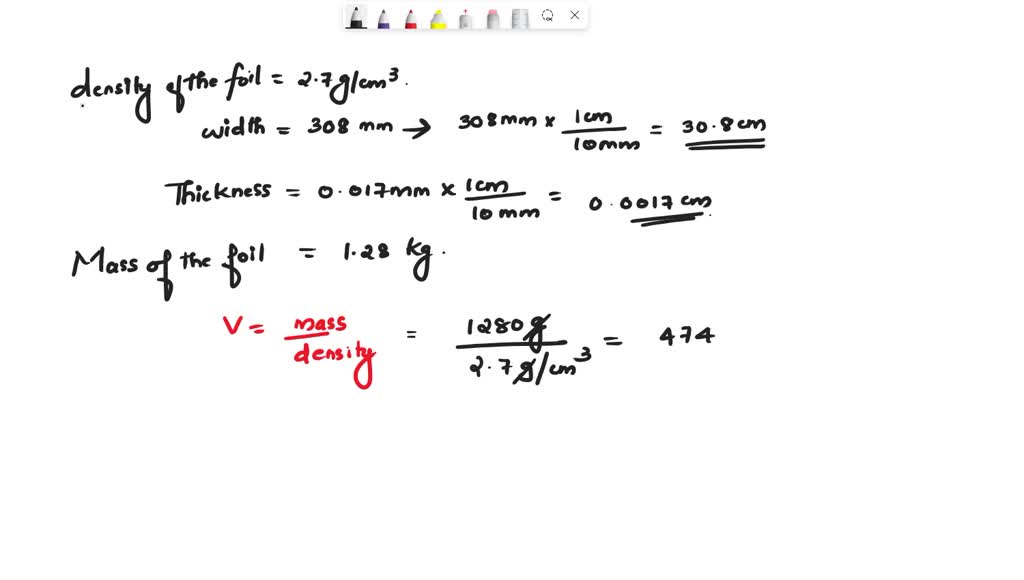 density of the foil = 2.7g/cm³.
width = 308 mm → 308mm × 1cm/10mm = 30.8cm
Thickness = 0.017mm × 1cm/10mm = 0.0017cm.
Mass of the foil = 1.28 kg.
V = mass/density = 1280g/2.7g/cm³ = 474